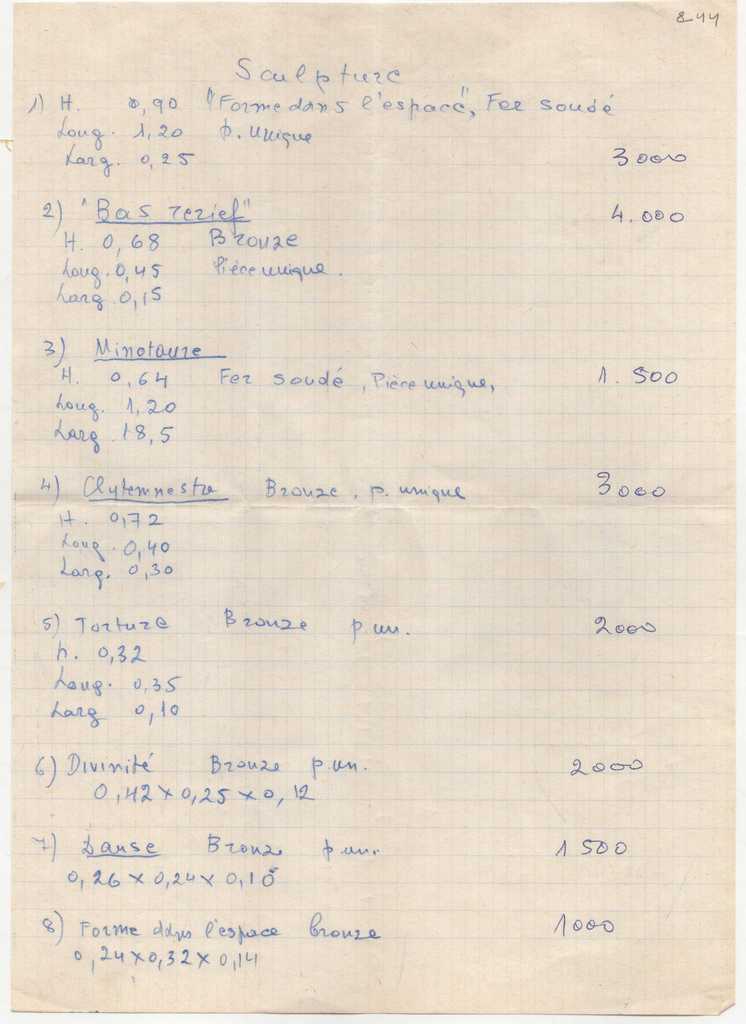 8-44
Sculpture
1) H. 0,90 "Forme dans l'espace", Fer soudé
Long. 1,20 p. unique
Larg. 0,25 3000
2) "Bas relief" 4.000
H. 0,68 Bronze
Long. 0,45 Pièce unique.
Larg. 0,15
3) Minotaure
H. 0,64 Fer soudé, Pièce unique, 1.500
Long. 1,20
Larg. 18,5
4) Clytemnestre Bronze, p. unique 3000
H. 0,72
Long. 0,40
Larg. 0,30
5) Torture Bronze p. un. 2000
h. 0,32
Long. 0,35
Larg 0,10
6) Divinité Bronze p. un. 2000
0,42 x 0,25 x 0,12
7) Danse Bronze p. un. 1500
0,26 x 0,24 x 0,10
8) Forme dans l'espace bronze 1000
0,24 x 0,32 x 0,14